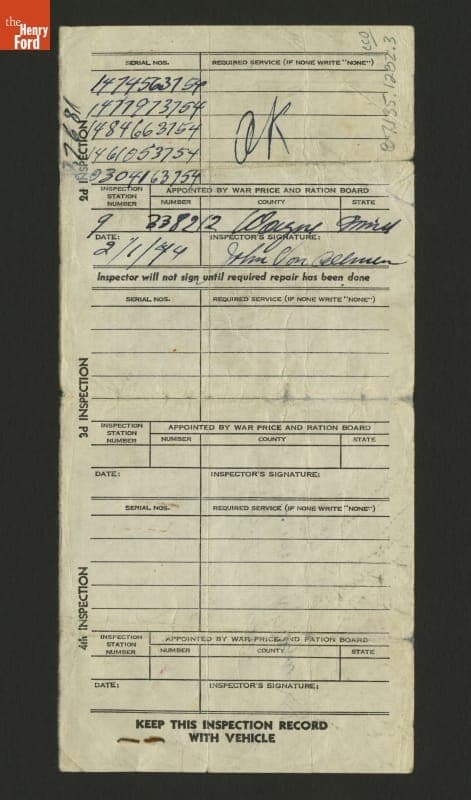 the
Henry
Ford
SERIAL NOS. REQUIRED SERVICE (IF NONE WRITE "NONE")
1474563754
1477973754
1484663754
1461053754
0304163754
OK
2d INSPECTION
INSPECTION STATION NUMBER
APPOINTED BY WAR PRICE AND RATION BOARD
NUMBER COUNTY STATE
9 238212 Wayne Mich
DATE: INSPECTOR'S SIGNATURE:
2/1/44 John Von
Inspector will not sign until required repair has been done
SERIAL NOS. REQUIRED SERVICE (IF NONE WRITE "NONE")
3d INSPECTION
INSPECTION STATION NUMBER
APPOINTED BY WAR PRICE AND RATION BOARD
NUMBER COUNTY STATE
DATE: INSPECTOR'S SIGNATURE:
SERIAL NOS. REQUIRED SERVICE (IF NONE WRITE "NONE")
4th INSPECTION
INSPECTION STATION NUMBER
APPOINTED BY WAR PRICE AND RATION BOARD
NUMBER COUNTY STATE
DATE: INSPECTOR'S SIGNATURE:
KEEP THIS INSPECTION RECORD
WITH VEHICLE